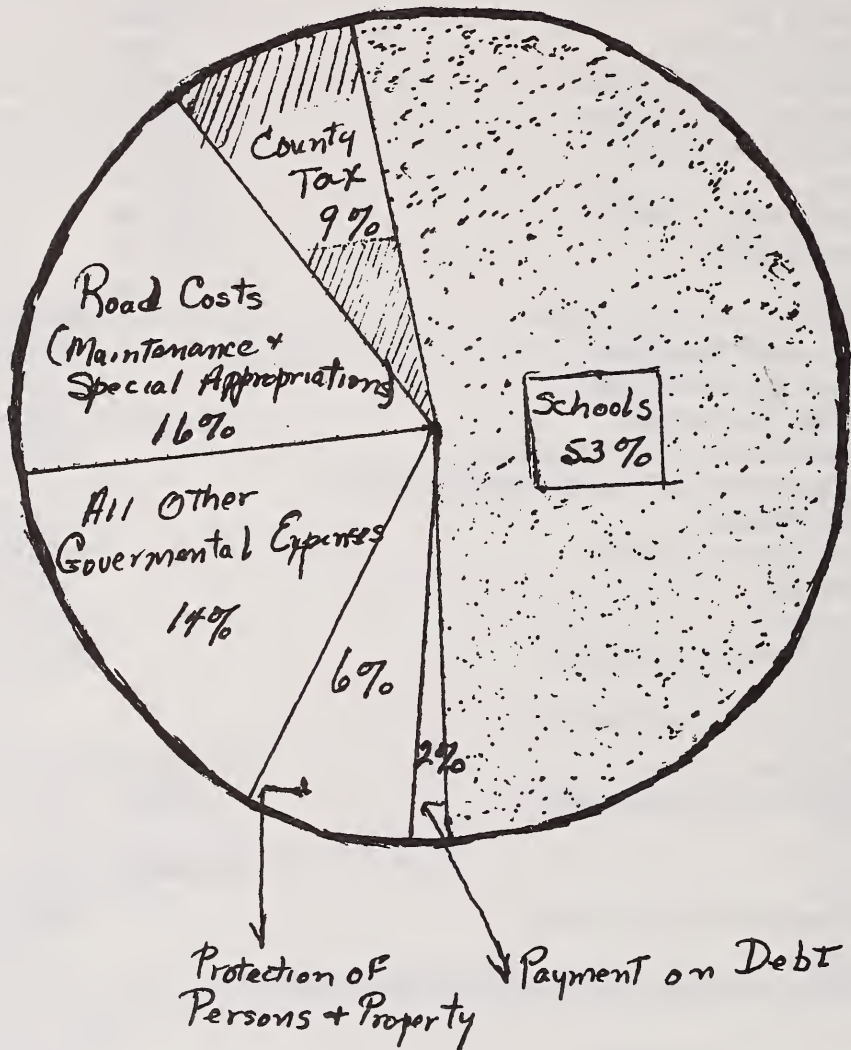 County
Tax
9%
Road Costs
(Maintenance +
Special Appropriations)
16%
Schools
53%
All Other
Govermental Expenses
14%
6%
2%
Protection of
Persons + Property
Payment on Debt